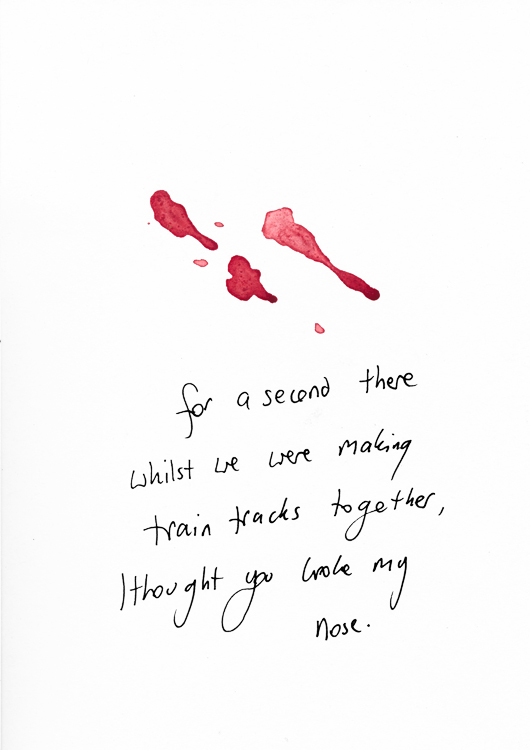 for a second there
whilst we were making
train tracks together,
I thought you broke my
nose.